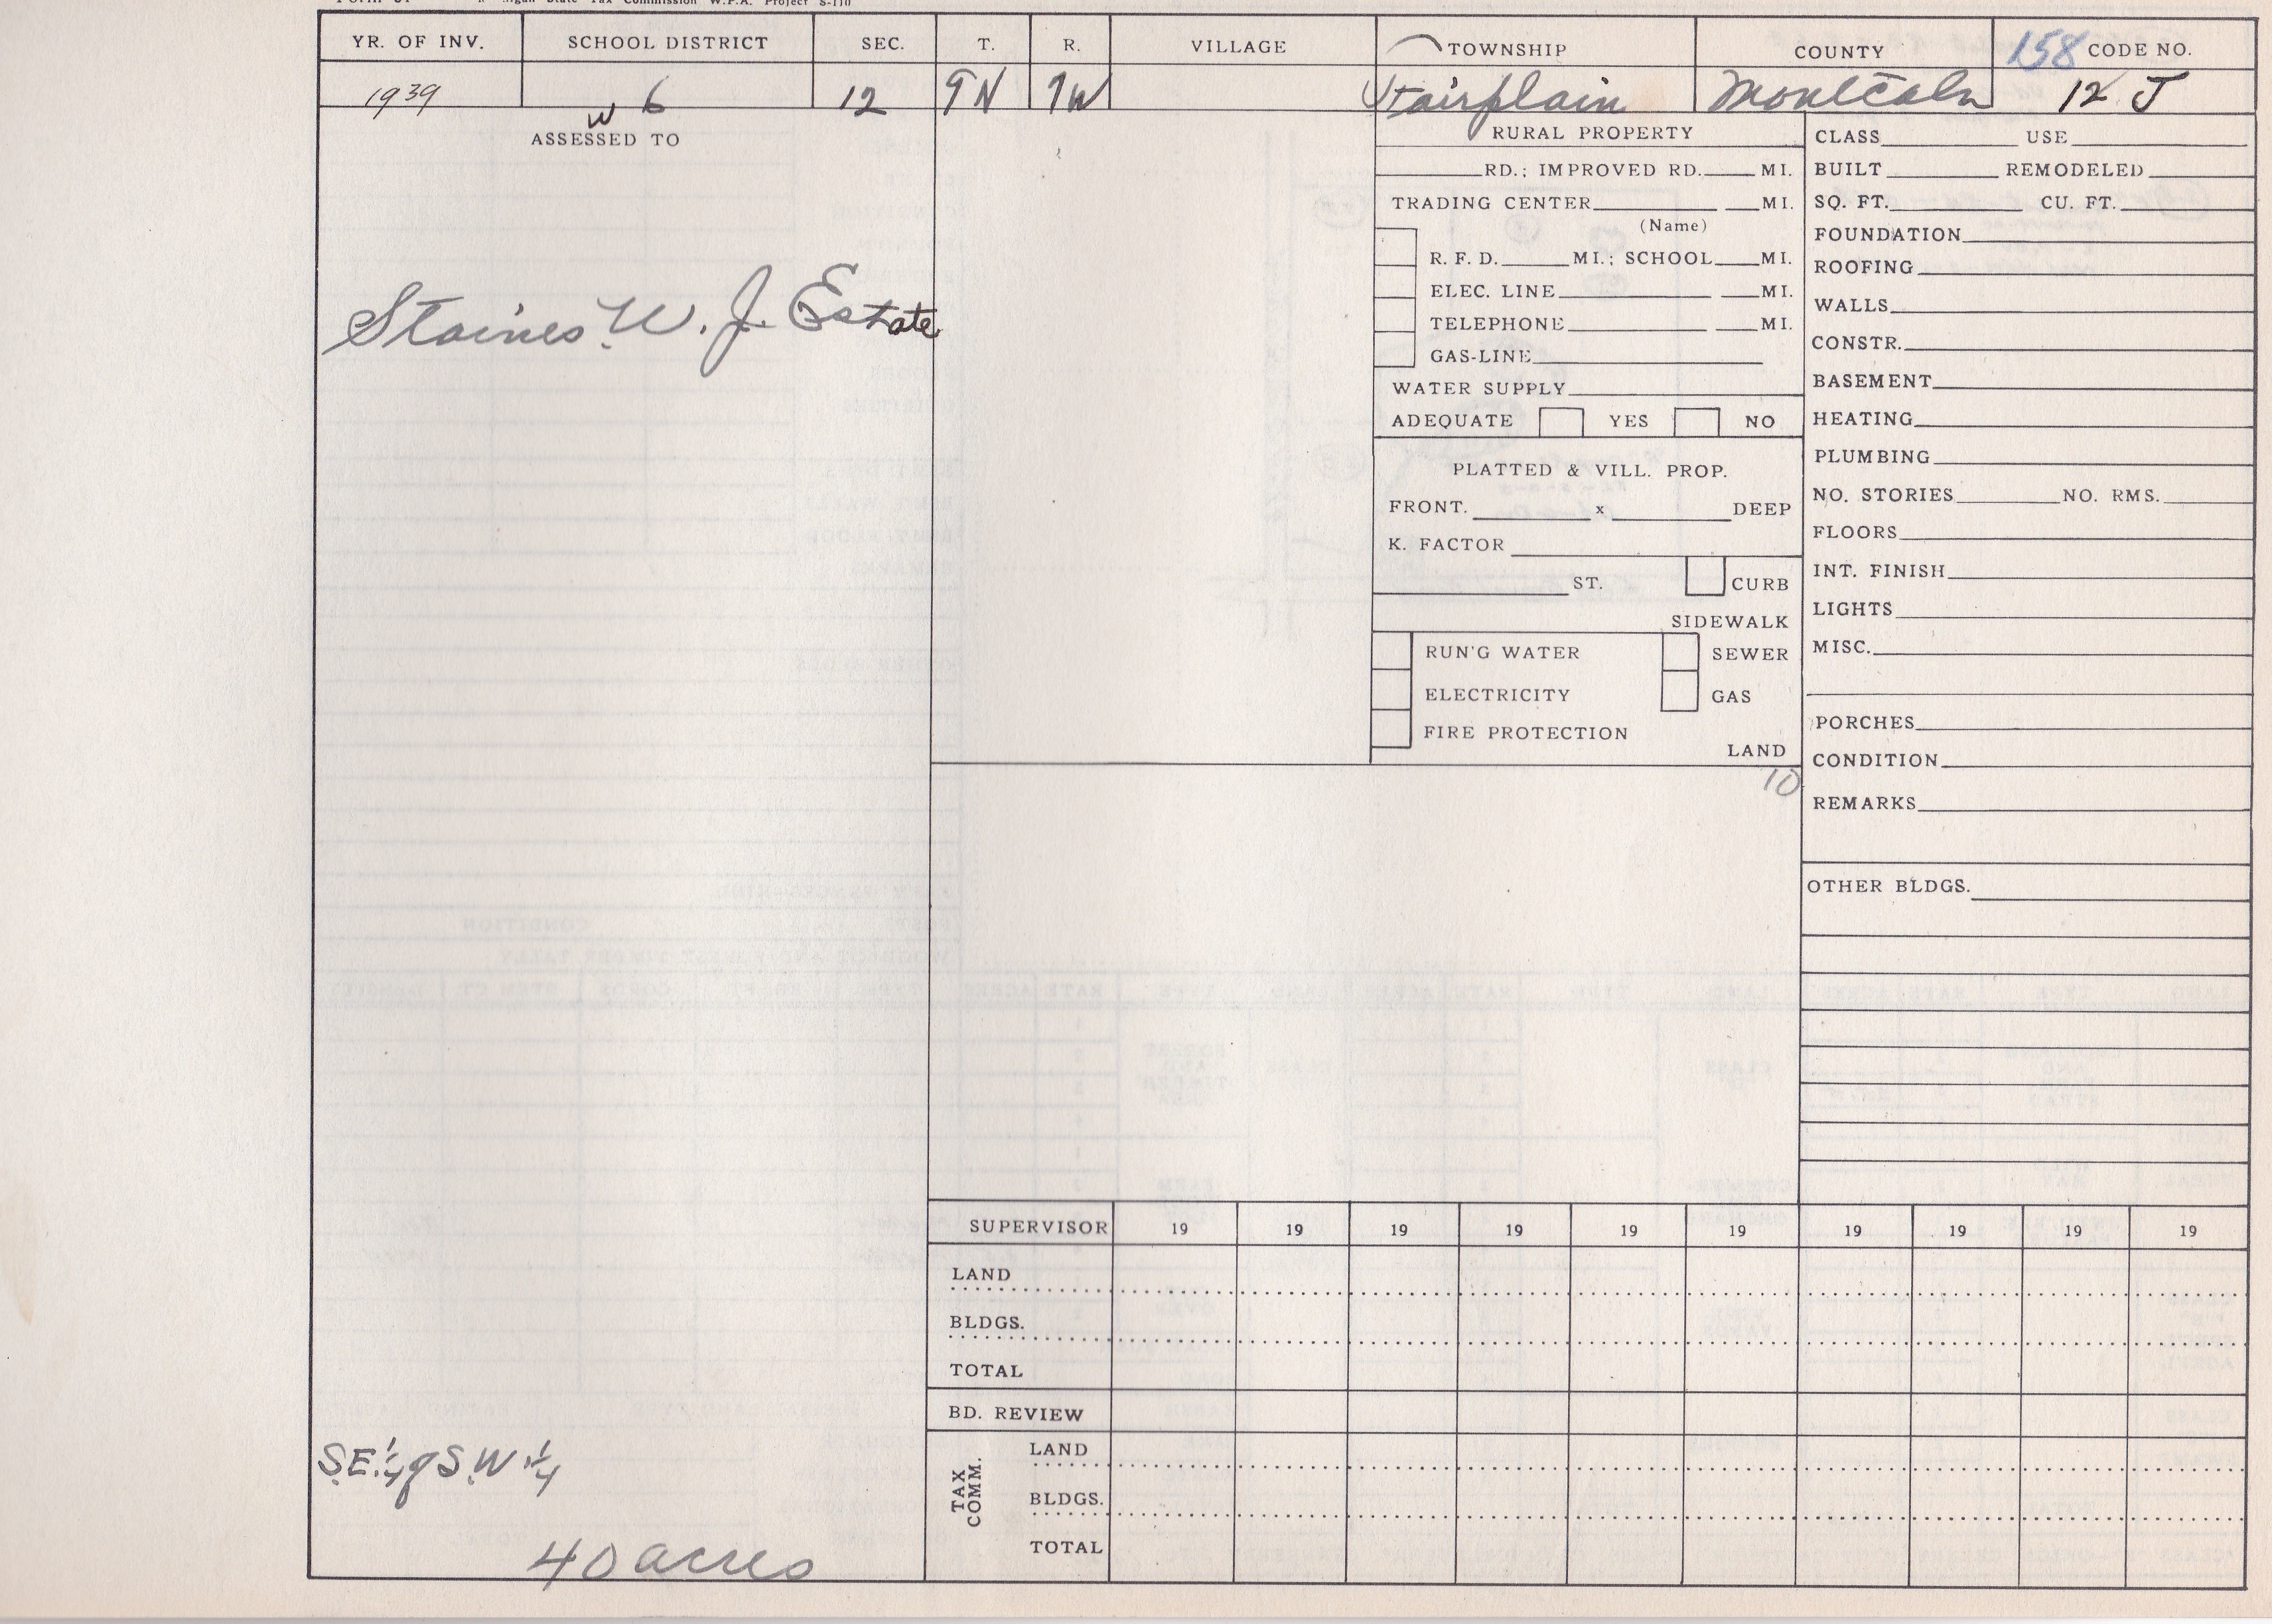 Tax Commission W.P.A. Project S-110
YR. OF INV. SCHOOL DISTRICT SEC. T. R. VILLAGE TOWNSHIP COUNTY 158 CODE NO.
1939 6 12 9N 7W Fairplain Montcalm 12 J
W
ASSESSED TO
Staines W. J. Estate
S.E. 1/4 of S.W 1/4
40 acres
RURAL PROPERTY
RD.; IMPROVED RD. MI.
TRADING CENTER MI.
(Name)
R. F. D. MI.; SCHOOL MI.
ELEC. LINE MI.
TELEPHONE MI.
GAS-LINE
WATER SUPPLY
ADEQUATE YES NO
PLATTED & VILL. PROP.
FRONT. x DEEP
K. FACTOR
ST. CURB
SIDEWALK
RUN'G WATER SEWER
ELECTRICITY GAS
FIRE PROTECTION
LAND
10
CLASS USE
BUILT REMODELED
SQ. FT. CU. FT.
FOUNDATION
ROOFING
WALLS
CONSTR.
BASEMENT
HEATING
PLUMBING
NO. STORIES NO. RMS.
FLOORS
INT. FINISH
LIGHTS
MISC.
PORCHES
CONDITION
REMARKS
OTHER BLDGS.
SUPERVISOR 19 19 19 19 19 19 19 19 19 19
LAND
BLDGS.
TOTAL
BD. REVIEW
TAX COMM.
LAND
BLDGS.
TOTAL